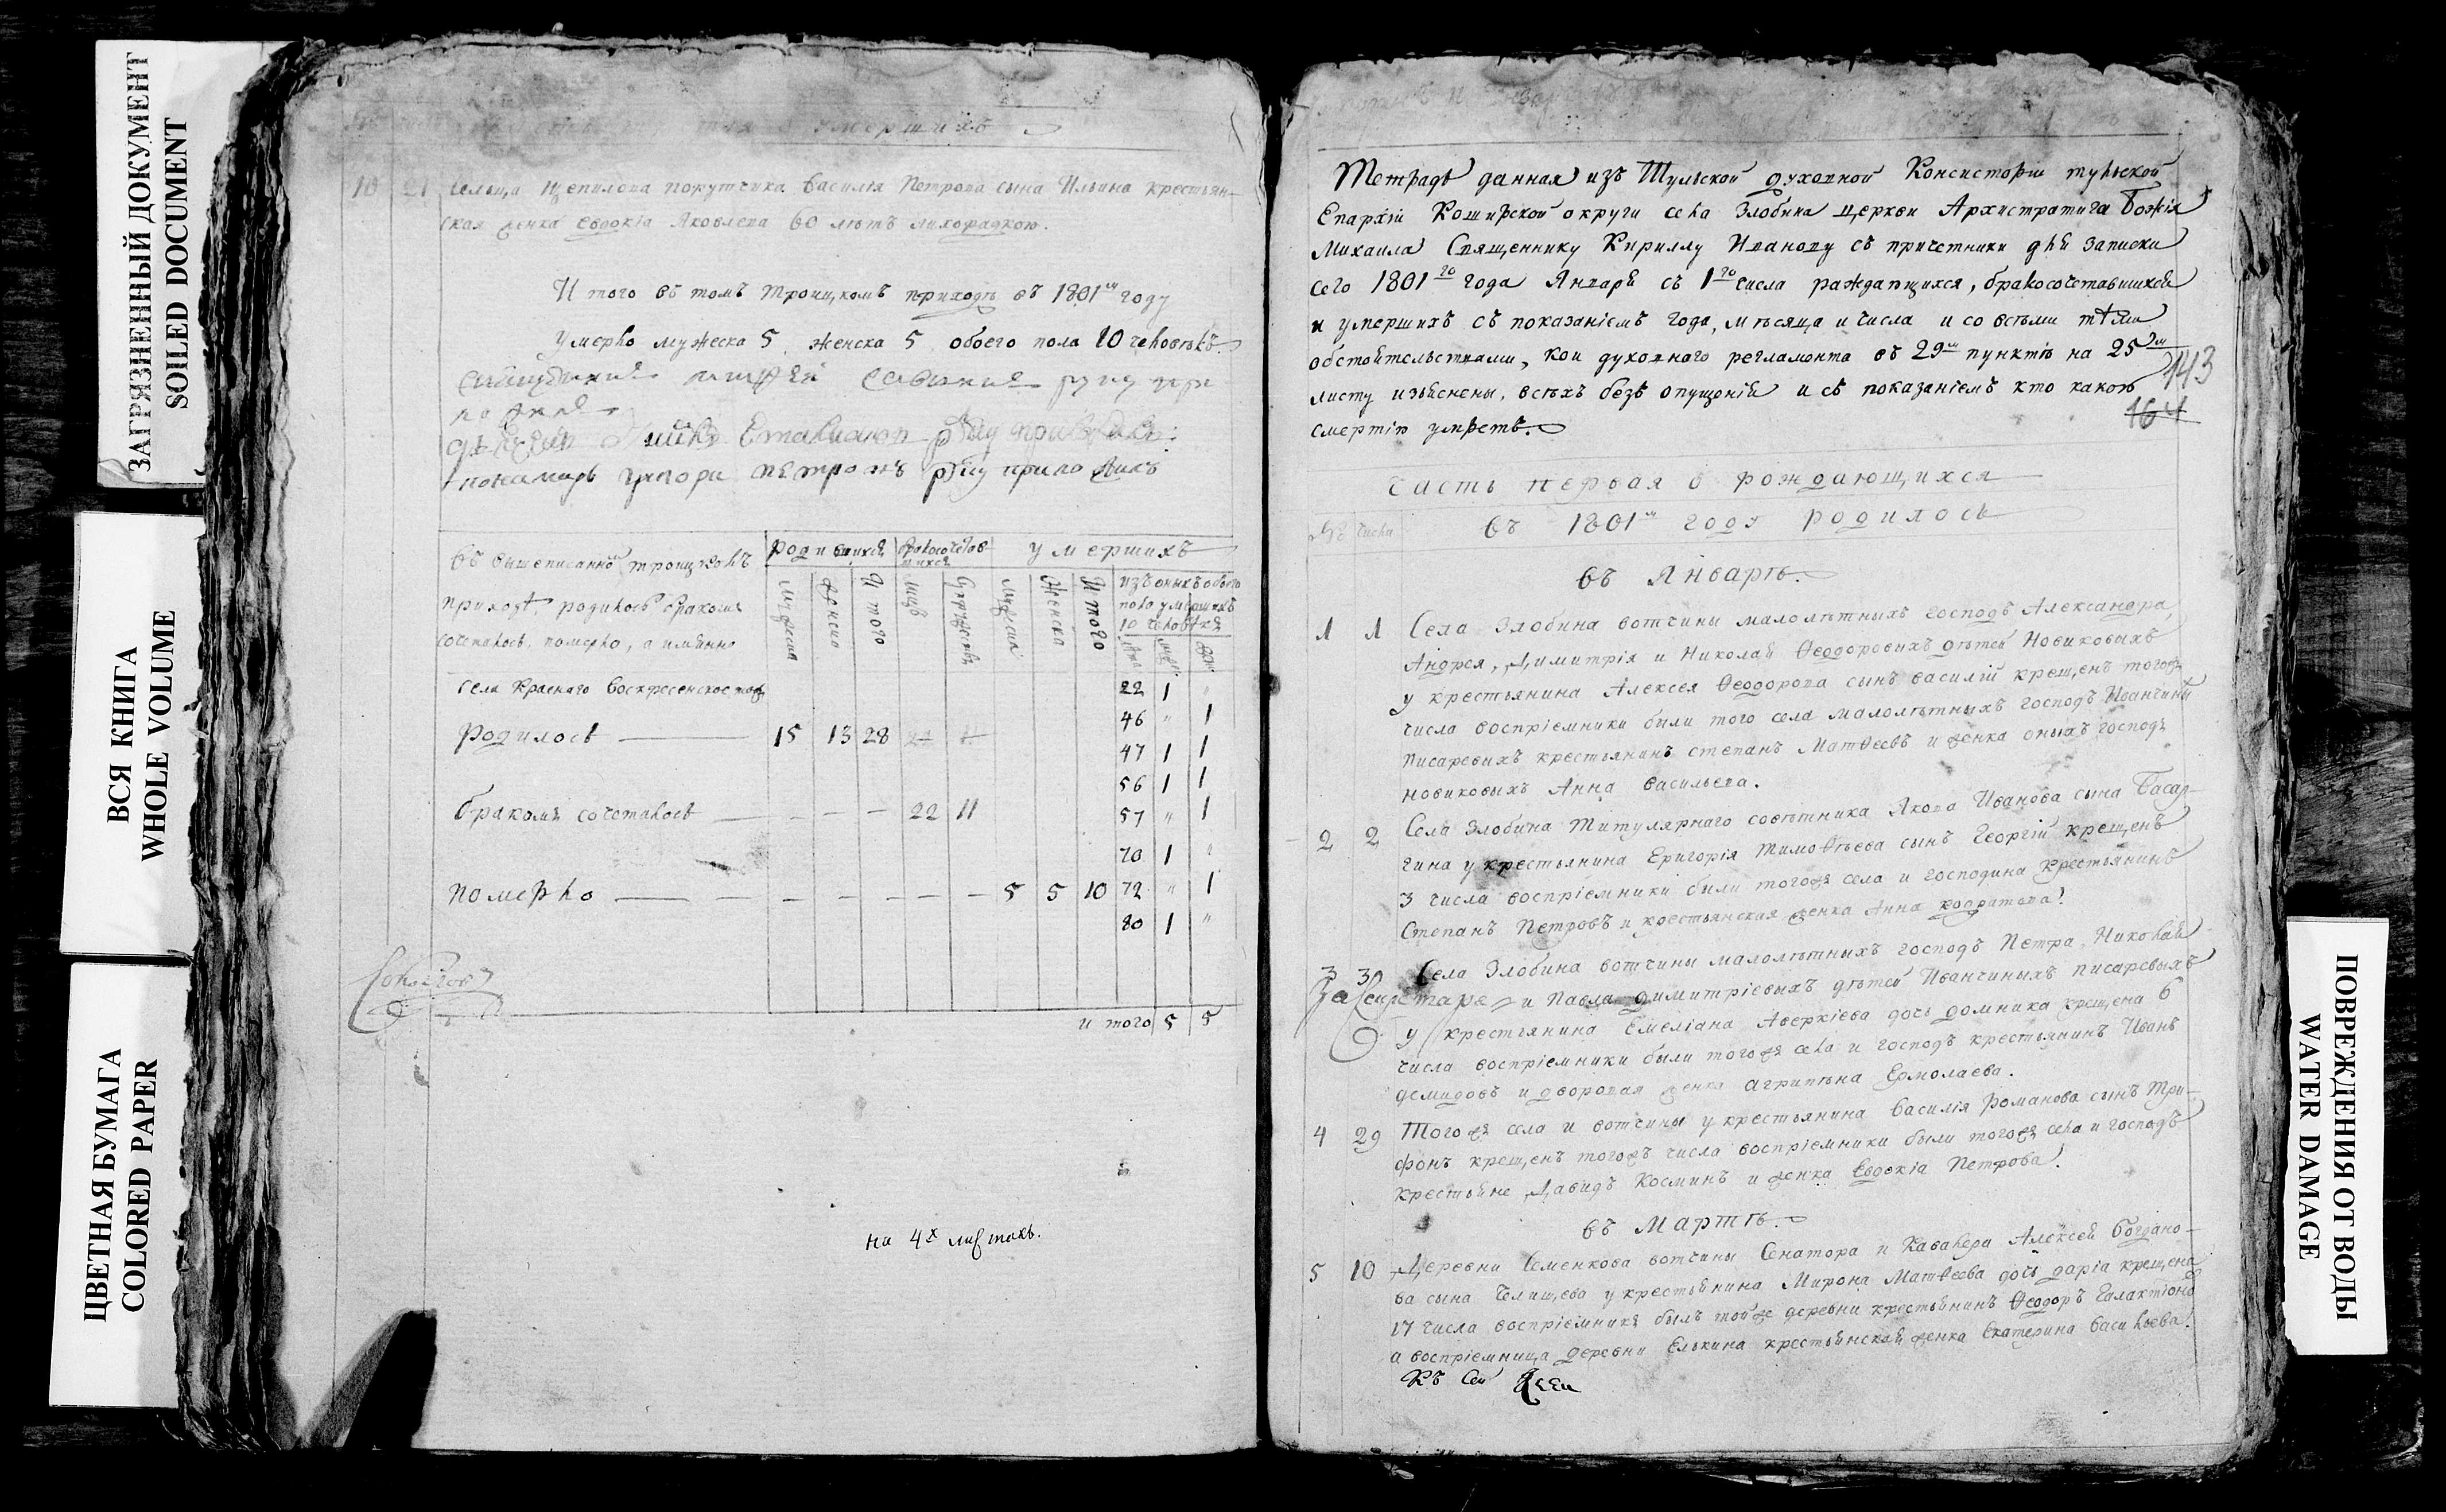 ЗАГРЯЗНЕННЫЙ ДОКУМЕНТ
SOILED DOCUMENT
ВСЯ КНИГА
WHOLE VOLUME
ЦВЕТНАЯ БУМАГА
COLORED PAPER
умершихъ
10 21 Сельца Щепилова порутчика Василія Петрова сына Ильина крестьян-
ская женка Евдокіа Яковлева 60 лѣтъ лихорадкою.
И того въ томъ Троицкомъ приходѣ въ 1801м году
умерло мужеска 5 женска 5 обоего пола 10 человѣкъ.
руку при
пономарь Григори Петровъ руку приложилъ
въ вышеписанномъ троицкомъ
приходѣ родилось бракомъ
сочеталось, померло, а имянно
родившихся
бракосочетав
шихся
умершихъ
мужеска женска И того лицъ супружествъ мужеска женска И того
изъ оныхъ обоего
пола умершихъ
10 человѣкъ
села Краснаго Воскресенское тож 22 1 "
46 " 1
Родилось 15 13 28
47 1 1
56 1 1
бракомъ сочеталось 22 11 57 " 1
70 1 "
померло 5 5 10 72 " 1
80 1 "
и того 5 5
на 4х листахъ.
Тетрадь данная изъ Тульской духовной Консисторіи тульской
Епархіи Коширской округи села Злобина церкви Архистратига Божія
Михаила Священнику Кириллу Иванову съ причетники для записки
сего 1801го года Января съ 1го числа раждающихся, бракосочетавшихся
и умершихъ съ показаніемъ года, мѣсяца и числа и со всѣми тѣми
обстоятельствами, кои духовнаго регламента въ 29м пунктѣ на 25м
листу изъяснены, всѣхъ безъ опущенія и съ показаніемъ кто какою
смертію умретъ.
143
164
Часть первая о рождающихся
№ числа
въ 1801м году родилось
въ Январѣ.
1 1 Села Злобина вотчины малолѣтныхъ господъ Александра,
Андрея, Димитрія и Николая Ѳеодоровихъ дѣтей Новиковыхъ
у крестьянина Алексея Ѳеодорова сынъ василій крещенъ тогож
числа воспріемники были того села малолѣтныхъ господъ Иванчины
Писаревихъ крестьянинъ степанъ Матѳеевъ и женка оныхъ господъ
новиковыхъ Анна Васильева.
2 2 Села Злобина титулярнаго совѣтника Якова Иванова сына Басар-
гина у крестьянина Григорія Тимоѳѣева сынъ Георгій крещенъ
3 числа воспріемники были тогожъ села и господина крестьянинъ
Степанъ Петровъ и крестьянская женка Анна кодратова.
3 3 Села Злобина вотчины малолѣтныхъ господъ Петра, Николая
За Секретаря и Павла Димитріевыхъ дѣтей Иванчиныхъ писаревыхъ
у крестьянина Емеліана Аверкіева дочь домника крещена 6
числа воспріемники были тогожъ села и господъ крестьянинъ Иванъ
демидовъ и дворовая женка агрипѣна Ермолаева.
4 29 Тогожъ села и вотчины у крестьянина Василія Романова сынъ Три-
фонъ крещенъ тогожъ числа воспріемники были тогожъ села и господъ
крестьяне Давидъ Косминъ и женка Евдокіа Петрова.
въ Мартѣ.
5 10 Деревни Семенкова вотчины Сенатора и Кавалера Алексея Богдано-
ва сына Челищева у крестьянина Мирона Матѳеева дочь даріа крещена
17 числа воспріемникъ былъ тойже деревни крестьянинъ Ѳеодоръ Галактіоно
а воспріемница деревни Елькина крестьянская женка Екатерина Васильева.
Къ Сей
ПОВРЕЖДЕНИЯ ОТ ВОДЫ
WATER DAMAGE